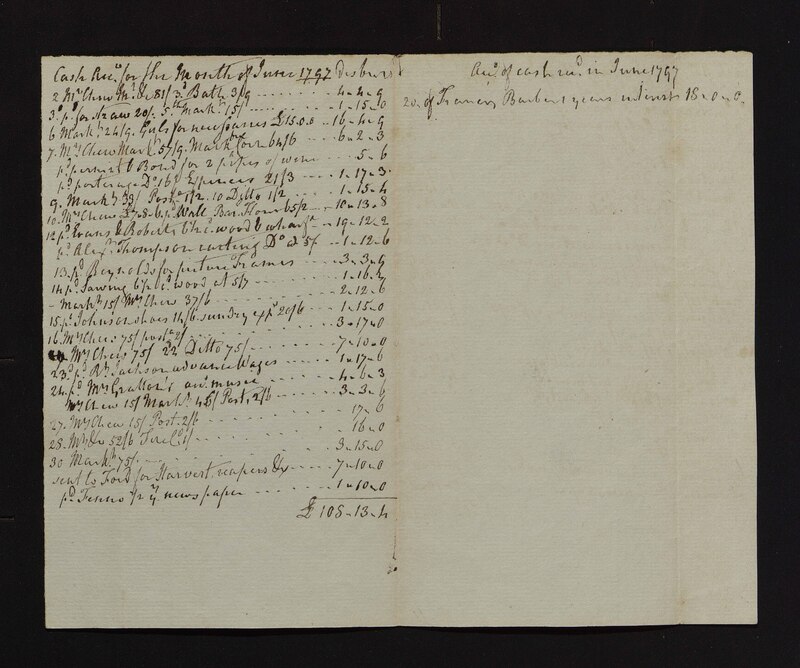 Cash Acc.t for the Month of June 1797 Disburs'd
2 Mrs Chew Mr. Do 81/ 3d Bath 3/9 - - - 4-4-9
3d pd for straw 20/. 5.th Markt. 15/ - - - 1-15-0
6 Markt. 24/9. Girls for necessaries £15.0.0 - 16-4-9
7. Mrs Chew Markt 57/9. Markt for Do 64/6 - - 6-2-3
pd permit & Bond for 2 pipes of wine - - - 5-6
pd porterage Do 16/ Expences 21/3 - - - 1-17-3
9. Markt. 33/ Post. 1/2. 10 Ditto 1/2 - - - 1-15-4
10. Mrs Chew £7-8-6. pd Wall Bar. Flour 65/2 - - 10-13-8
12 pd. Evans & Roberts wood & wharfe - 19-12-2
pd. Alexr Thompson carting Do at 5/ - 1-12-6
13. pd Reynolds for picture Frames - - - 3-3-9
14. pd Sawing 6 Cd. wood at 5/7 - - -
- Markt. 15/ Mrs Chew 37/6 - - - 2-12-6
15. pd Johnson shoes 14/6. sundry expt 20/6 - - - 1-15-0
16. Mrs Chew 75/ post. 2/ - - - 3-17-0
Mrs Chew 75/ 22 Ditto 75/ - - - 7-10-0
23. pd Rd. Jackson advance Wages - - - 1-17-6
24. pd Mrs Gratton's acct. music - - - 4-6-3
Mrs Chew 15/ Markt. 45/ Post. 2/6 - - - 3-3-6
27. Mrs Chew 15/ Post. 2/6 - - - 17-6
28. Mrs Do 52/6 - - - 16-0
30 Markt. 75/. - - - 3-15-0
sent to Ford for Harvest, reapers &c - - - 7-10-0
pd. Fenno for ye newspaper - - - 1-10-0
£ 108-13-4
Acct of cash recd. in June 1797
20. of Francis Barber 1 years interest 18-0-0.